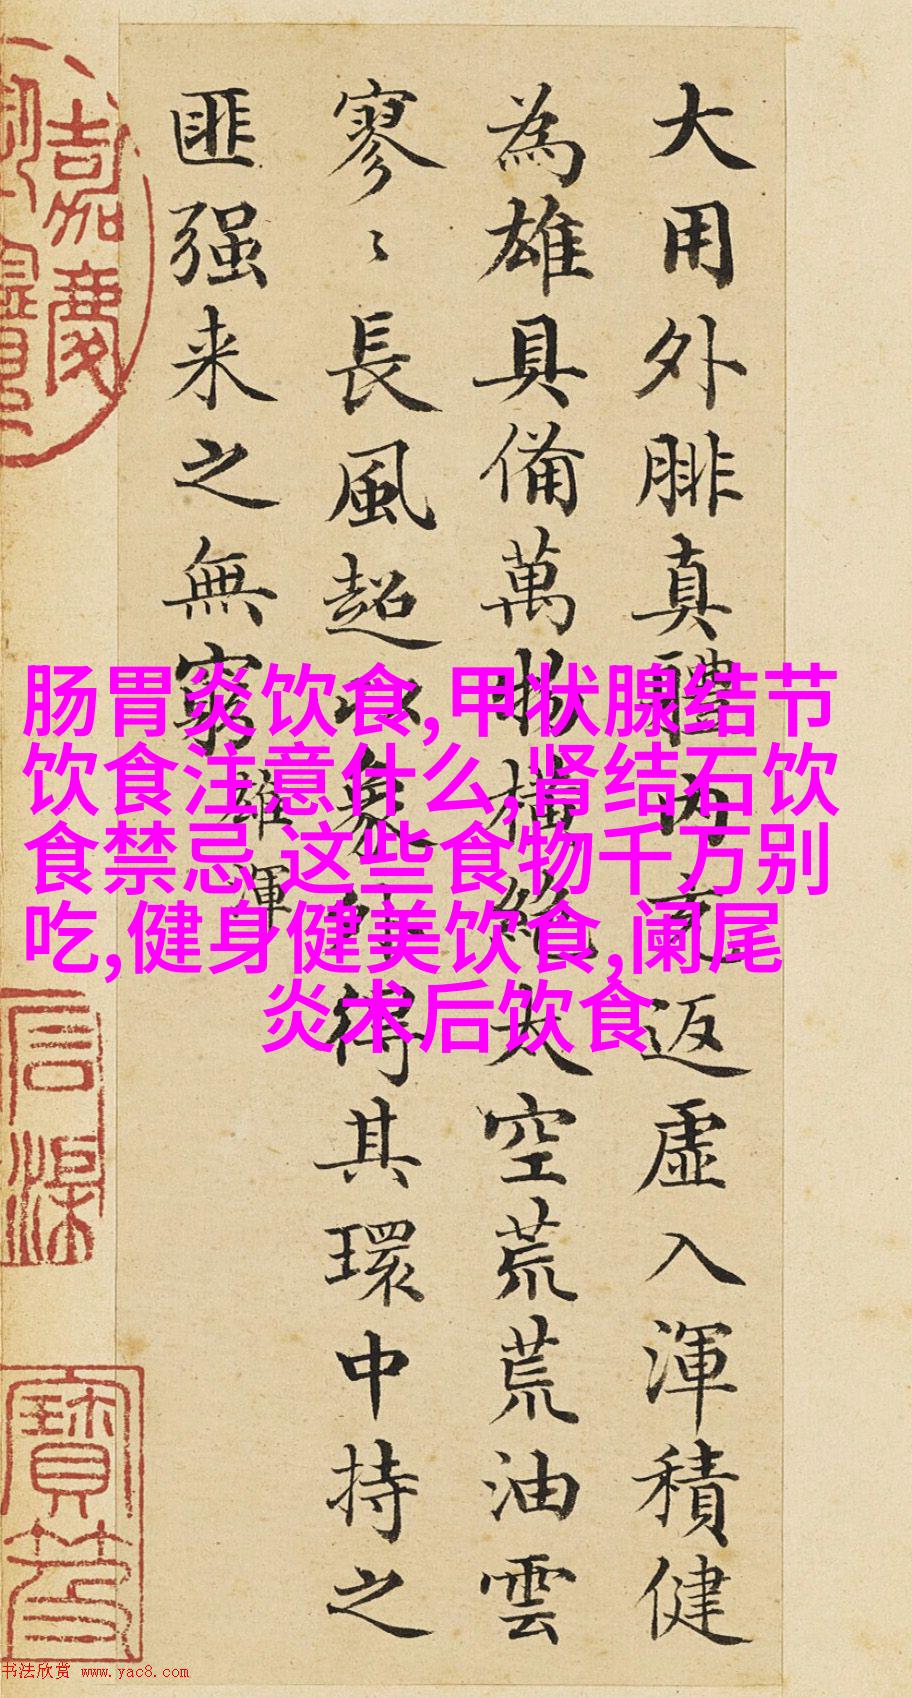 大用外腓真體内充返虛入渾積健
為雄具備萬物橫絶太空荒荒油雲
寥〻長風超以象外得其環中持之
匪强来之無窮
雄渾
肠胃炎饮食,甲状腺结节
饮食注意什么,肾结石饮
食禁忌 这些食物千万别
吃,健身健美饮食,阑尾
炎术后饮食
嘉慶
书法欣赏 www.yac8.com